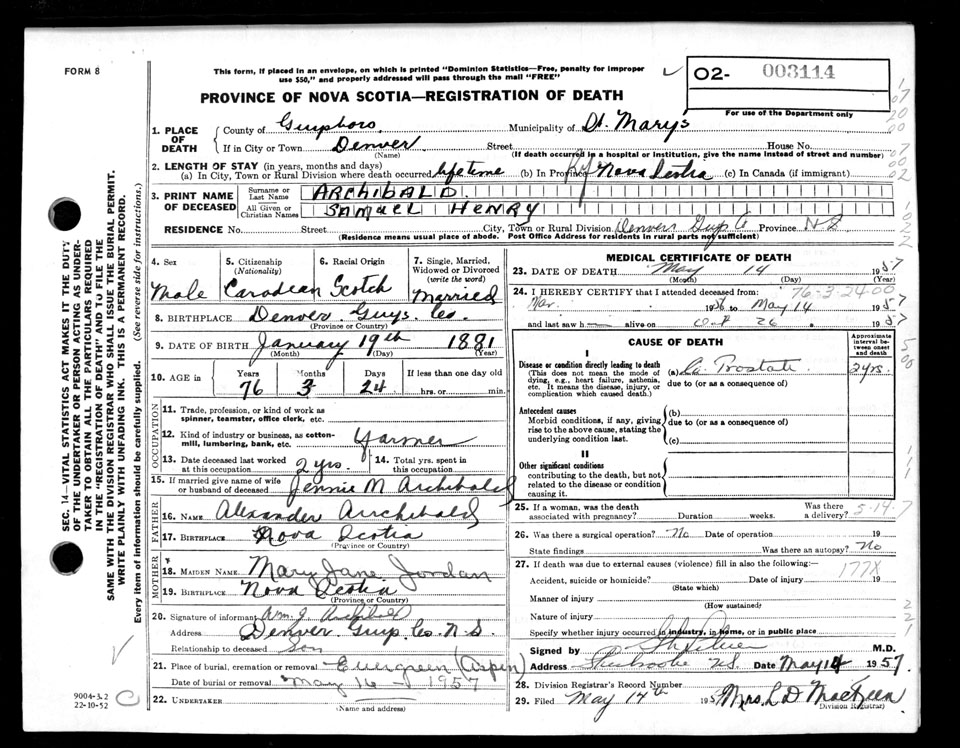 FORM 8
This form, if placed in an envelope, on which is printed "Dominion Statistics—Free, penalty for improper
use $50," and properly addressed will pass through the mail "FREE"
02- 003114
For use of the Department only
PROVINCE OF NOVA SCOTIA—REGISTRATION OF DEATH
SEC. 14—VITAL STATISTICS ACT MAKES IT THE DUTY
OF THE UNDERTAKER OR PERSON ACTING AS UNDER-
TAKER TO OBTAIN ALL THE PARTICULARS REQUIRED
IN THE "REGISTRATION OF DEATH" AND TO FILE THE
SAME WITH THE DIVISION REGISTRAR WHO SHALL ISSUE THE BURIAL PERMIT.
WRITE PLAINLY WITH UNFADING INK. THIS IS A PERMANENT RECORD.
Every item of information should be carefully supplied. (See reverse side for instructions.)
1. PLACE OF DEATH County of Guysboro Municipality of St. Marys
If in City or Town Denver Street House No.
(Name) (If death occurred in a hospital or Institution, give the name instead of street and number)
2. LENGTH OF STAY (in years, months and days)
(a) In City, Town or Rural Division where death occurred lifetime (b) In Province Nova Scotia (c) In Canada (if immigrant)
3. PRINT NAME OF DECEASED Surname or Last Name ARCHIBALD
All Given or Christian Names SAMUEL HENRY
RESIDENCE No. Street City, Town or Rural Division Denver Guys Co Province N-S
(Residence means usual place of abode. Post Office Address for residents in rural parts not sufficient)
4. Sex Male
5. Citizenship (Nationality) Canadian
6. Racial Origin Scotch
7. Single, Married, Widowed or Divorced (write the word) Married
8. BIRTHPLACE Denver Guys. Co.
(Province or Country)
9. DATE OF BIRTH January 19th 1881
(Month) (Day) (Year)
10. AGE in Years 76 Months 3 Days 24 If less than one day old hrs. or min.
OCCUPATION
11. Trade, profession, or kind of work as spinner, teamster, office clerk, etc.
12. Kind of industry or business, as cotton-mill, lumbering, bank, etc. Farmer
13. Date deceased last worked at this occupation 2 yrs.
14. Total yrs. spent in this occupation
15. If married give name of wife or husband of deceased Jennie M Archibald
FATHER
16. NAME Alexander Archibald
17. BIRTHPLACE Nova Scotia
(Province or Country)
MOTHER
18. MAIDEN NAME Mary Jane Jordan
19. BIRTHPLACE Nova Scotia
(Province or Country)
20. Signature of informant Wm. J. Archibald
Address Denver Guys Co. N-S.
Relationship to deceased Son
21. Place of burial, cremation or removal Evergreen (Aspen)
Date of burial or removal May 16 1957
22. UNDERTAKER
(Name and address)
9004-3.2
22-10-52
MEDICAL CERTIFICATE OF DEATH
23. DATE OF DEATH May 14 1957
(Month) (Day) (Year)
24. I HEREBY CERTIFY that I attended deceased from: 76-3-24 00
Mar. 1956 to May 14 1957
and last saw h alive on 26 1957
CAUSE OF DEATH
Approximate interval between onset and death
I
Disease or condition directly leading to death
(This does not mean the mode of dying, e.g., heart failure, asthenia, etc. It means the disease, injury, or complication which caused death.)
(a) Ca. Prostate 2 yrs.
due to (or as a consequence of)
Antecedent causes
Morbid conditions, if any, giving rise to the above cause, stating the underlying condition last.
(b)
due to (or as a consequence of)
(c)
II
Other significant conditions
contributing to the death, but not related to the disease or condition causing it.
25. If a woman, was the death associated with pregnancy? Duration weeks. Was there a delivery? 5-14-7
26. Was there a surgical operation? No Date of operation 19
State findings Was there an autopsy? No
27. If death was due to external causes (violence) fill in also the following: 177X
Accident, suicide or homicide? Date of injury 19
(State which)
Manner of injury
(How sustained)
Nature of injury
Specify whether injury occurred in industry, in home, or in public place
Signed by M.D.
Address Sherbrooke N.S. Date May 14 1957.
28. Division Registrar's Record Number
29. Filed May 14th 195 Mrs. L D MacKeen
Division Registrar